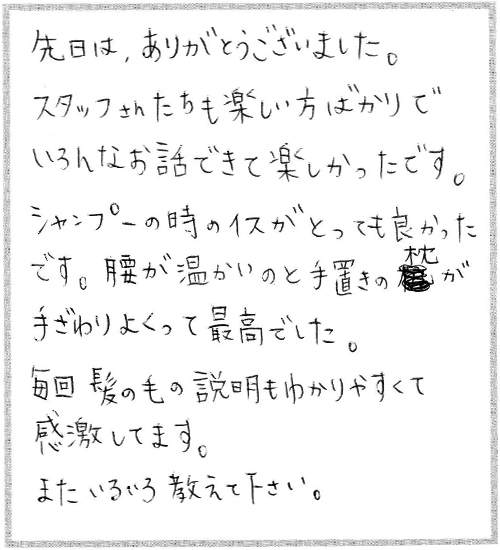 先日は、ありがとうございました。
スタッフさんたちも楽しい方ばかりで
いろんなお話できて楽しかったです。
シャンプーの時のイスがとっても良かった
です。腰が温かいのと手置きの枕が
手ざわりよくって最高でした。
毎回髪の毛の説明もわかりやすくて
感激してます。
またいろいろ教えて下さい。